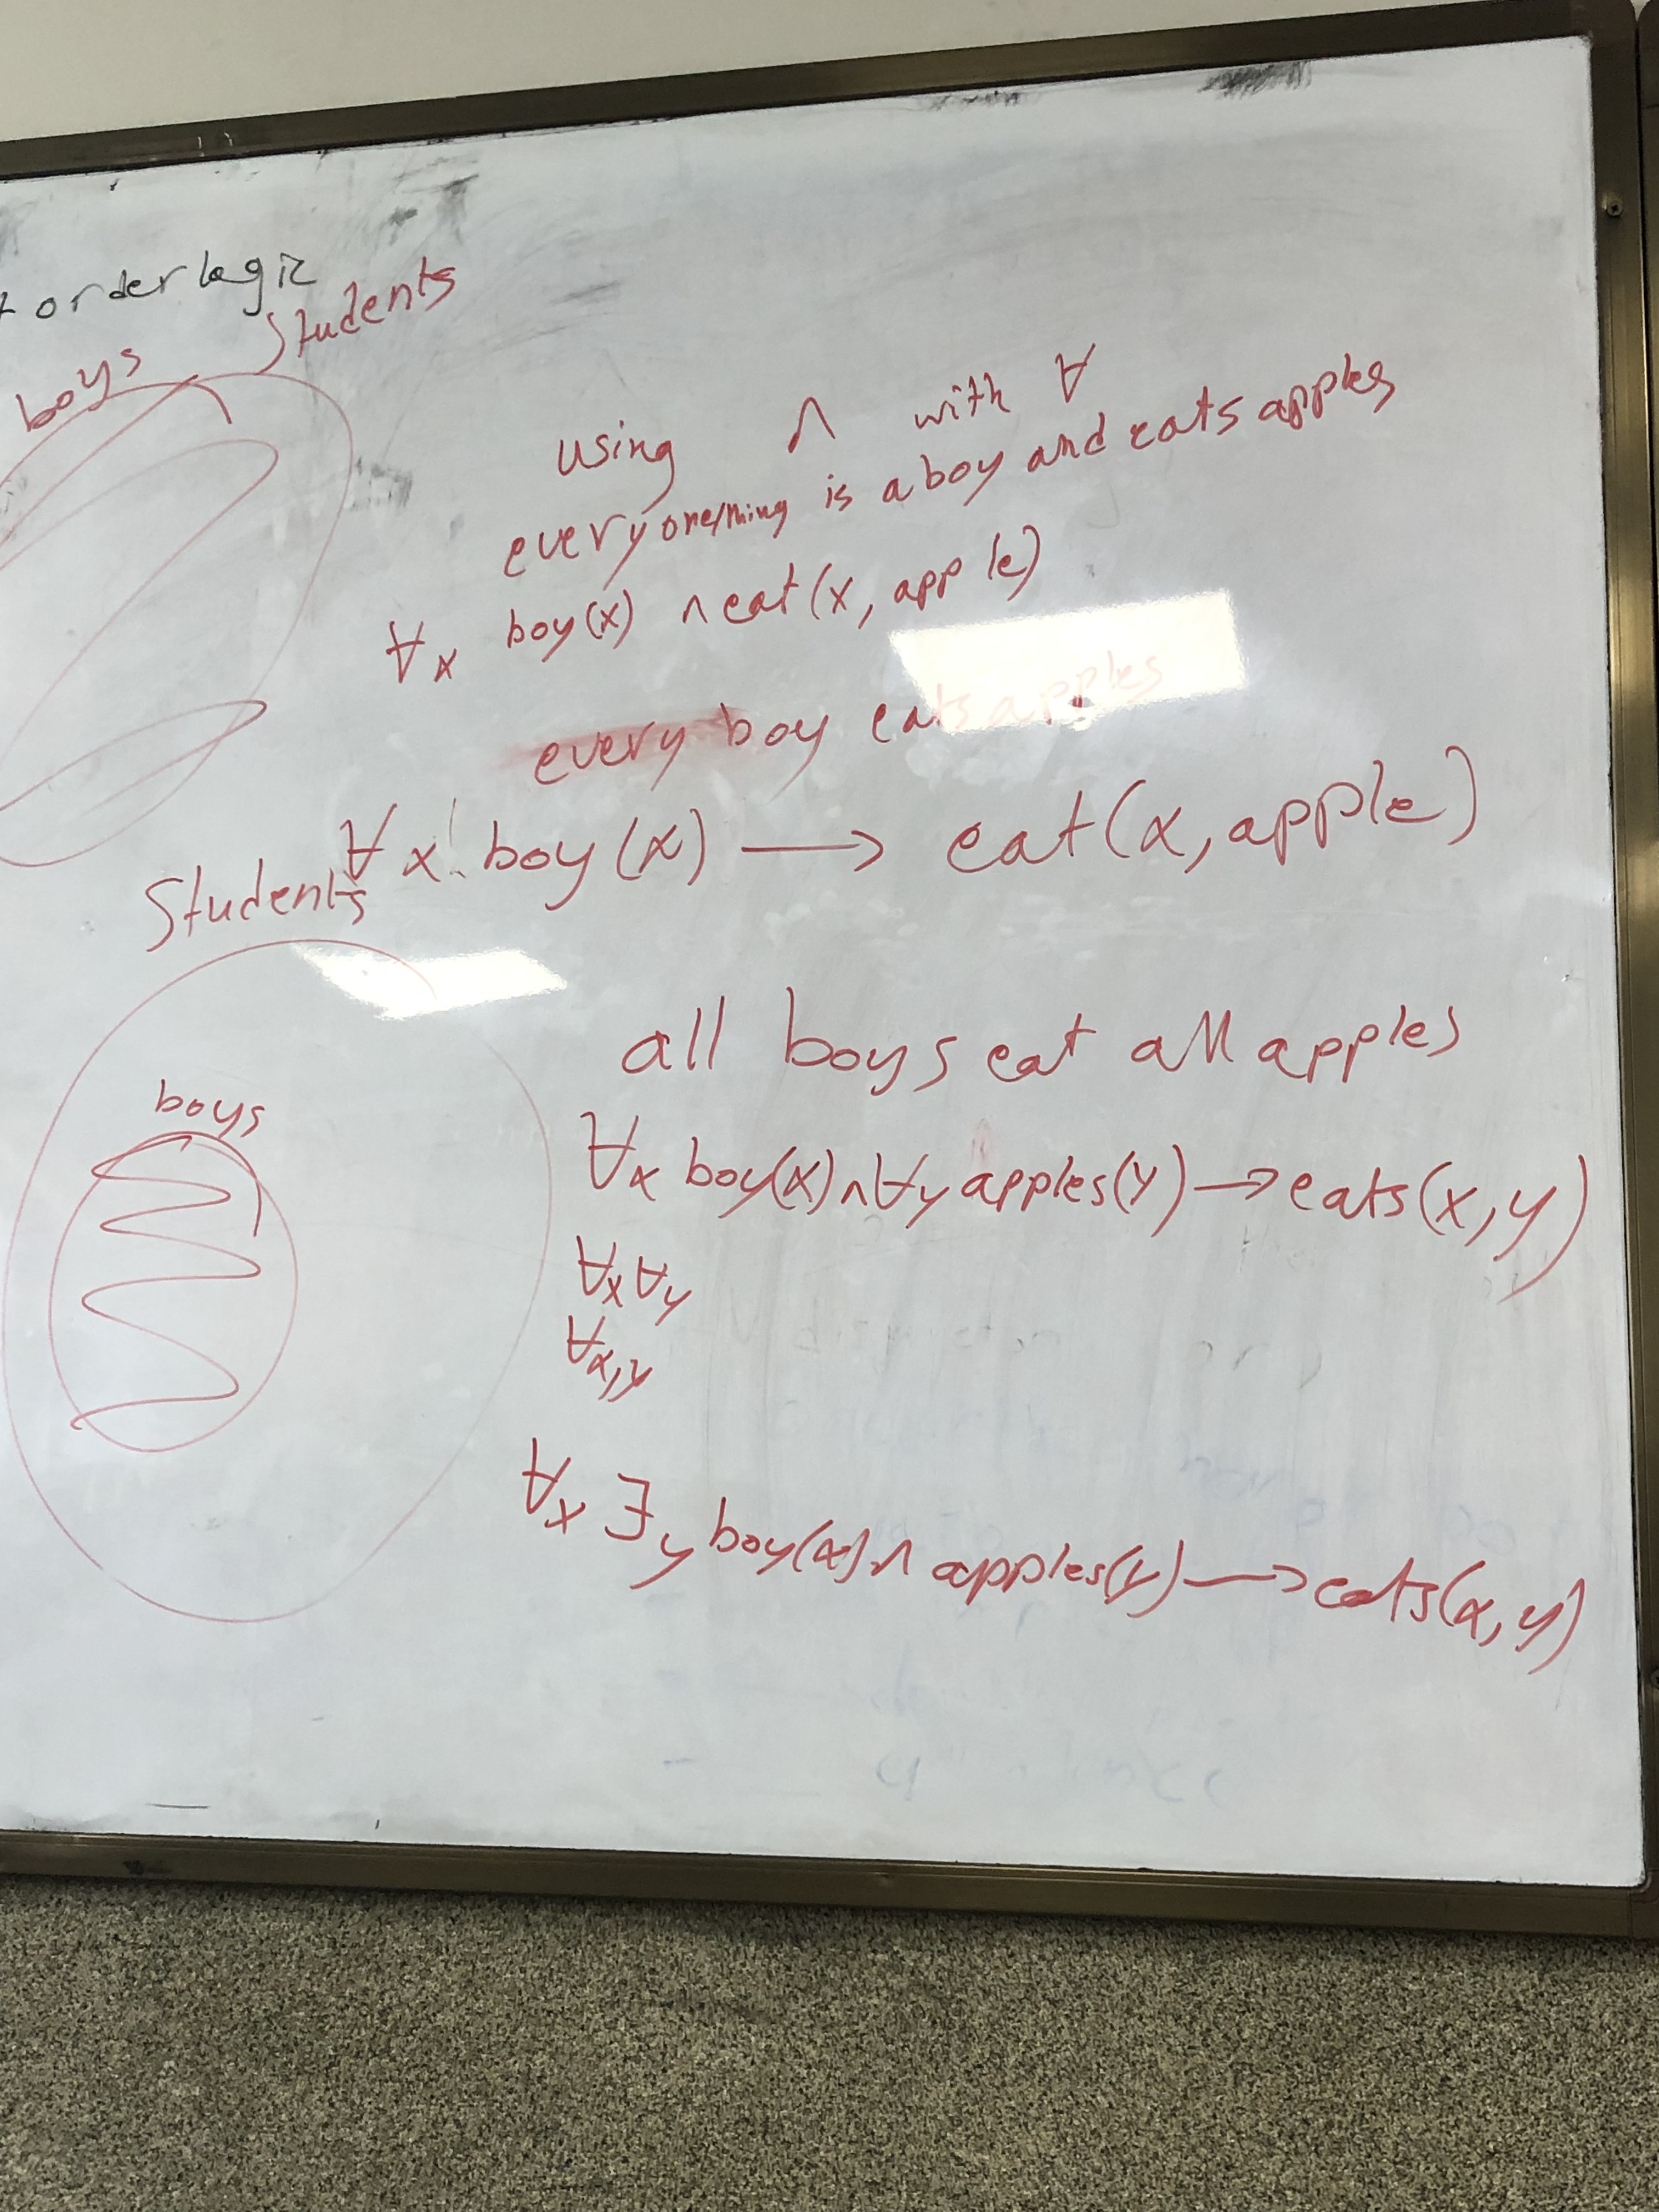 order logic
boys
Students
using ∧ with ∀
everyone/thing is a boy and eats apples
∀x boy(x) ∧ eat(x, apple)
every boy eats apples
∀x boy(x) → eat(x, apple)
Students
boys
all boys eat all apples
∀x boy(x) ∧ ∀y apples(y) → eats(x, y)
∀x ∀y
∀x,y
∀x ∃y boy(x) ∧ apples(y) → eats(x, y)